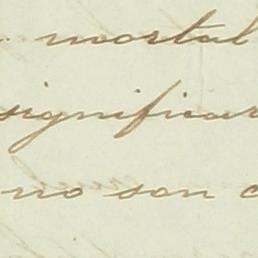 mortal
significar
no son c